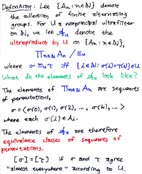 Definition: Let {Aₙ : n∈ℕ} denote
the collection of finite alternating
groups. For U a nonprincipal ultrafilter
on ℕ, we let 𝒜_U denote the
ultraproduct by U on {Aₙ : n∈ℕ},
Πₙ∈ℕ Aₙ / ≡_U
where σ ≡_U τ iff {i∈ℕ : σ(i)=τ(i)}∈U.
What do the elements of 𝒜_U look like?
The elements of Πₙ∈ℕ Aₙ are sequences
of permutations,
σ = (σ(0), σ(1), σ(2), ..., σ(i), ...)
where each σ(i)∈Aᵢ.
The elements of 𝒜_U are therefore
equivalence classes of sequences
of permutations.
[σ]=[τ] if σ and τ agree
"almost everywhere" according to U.